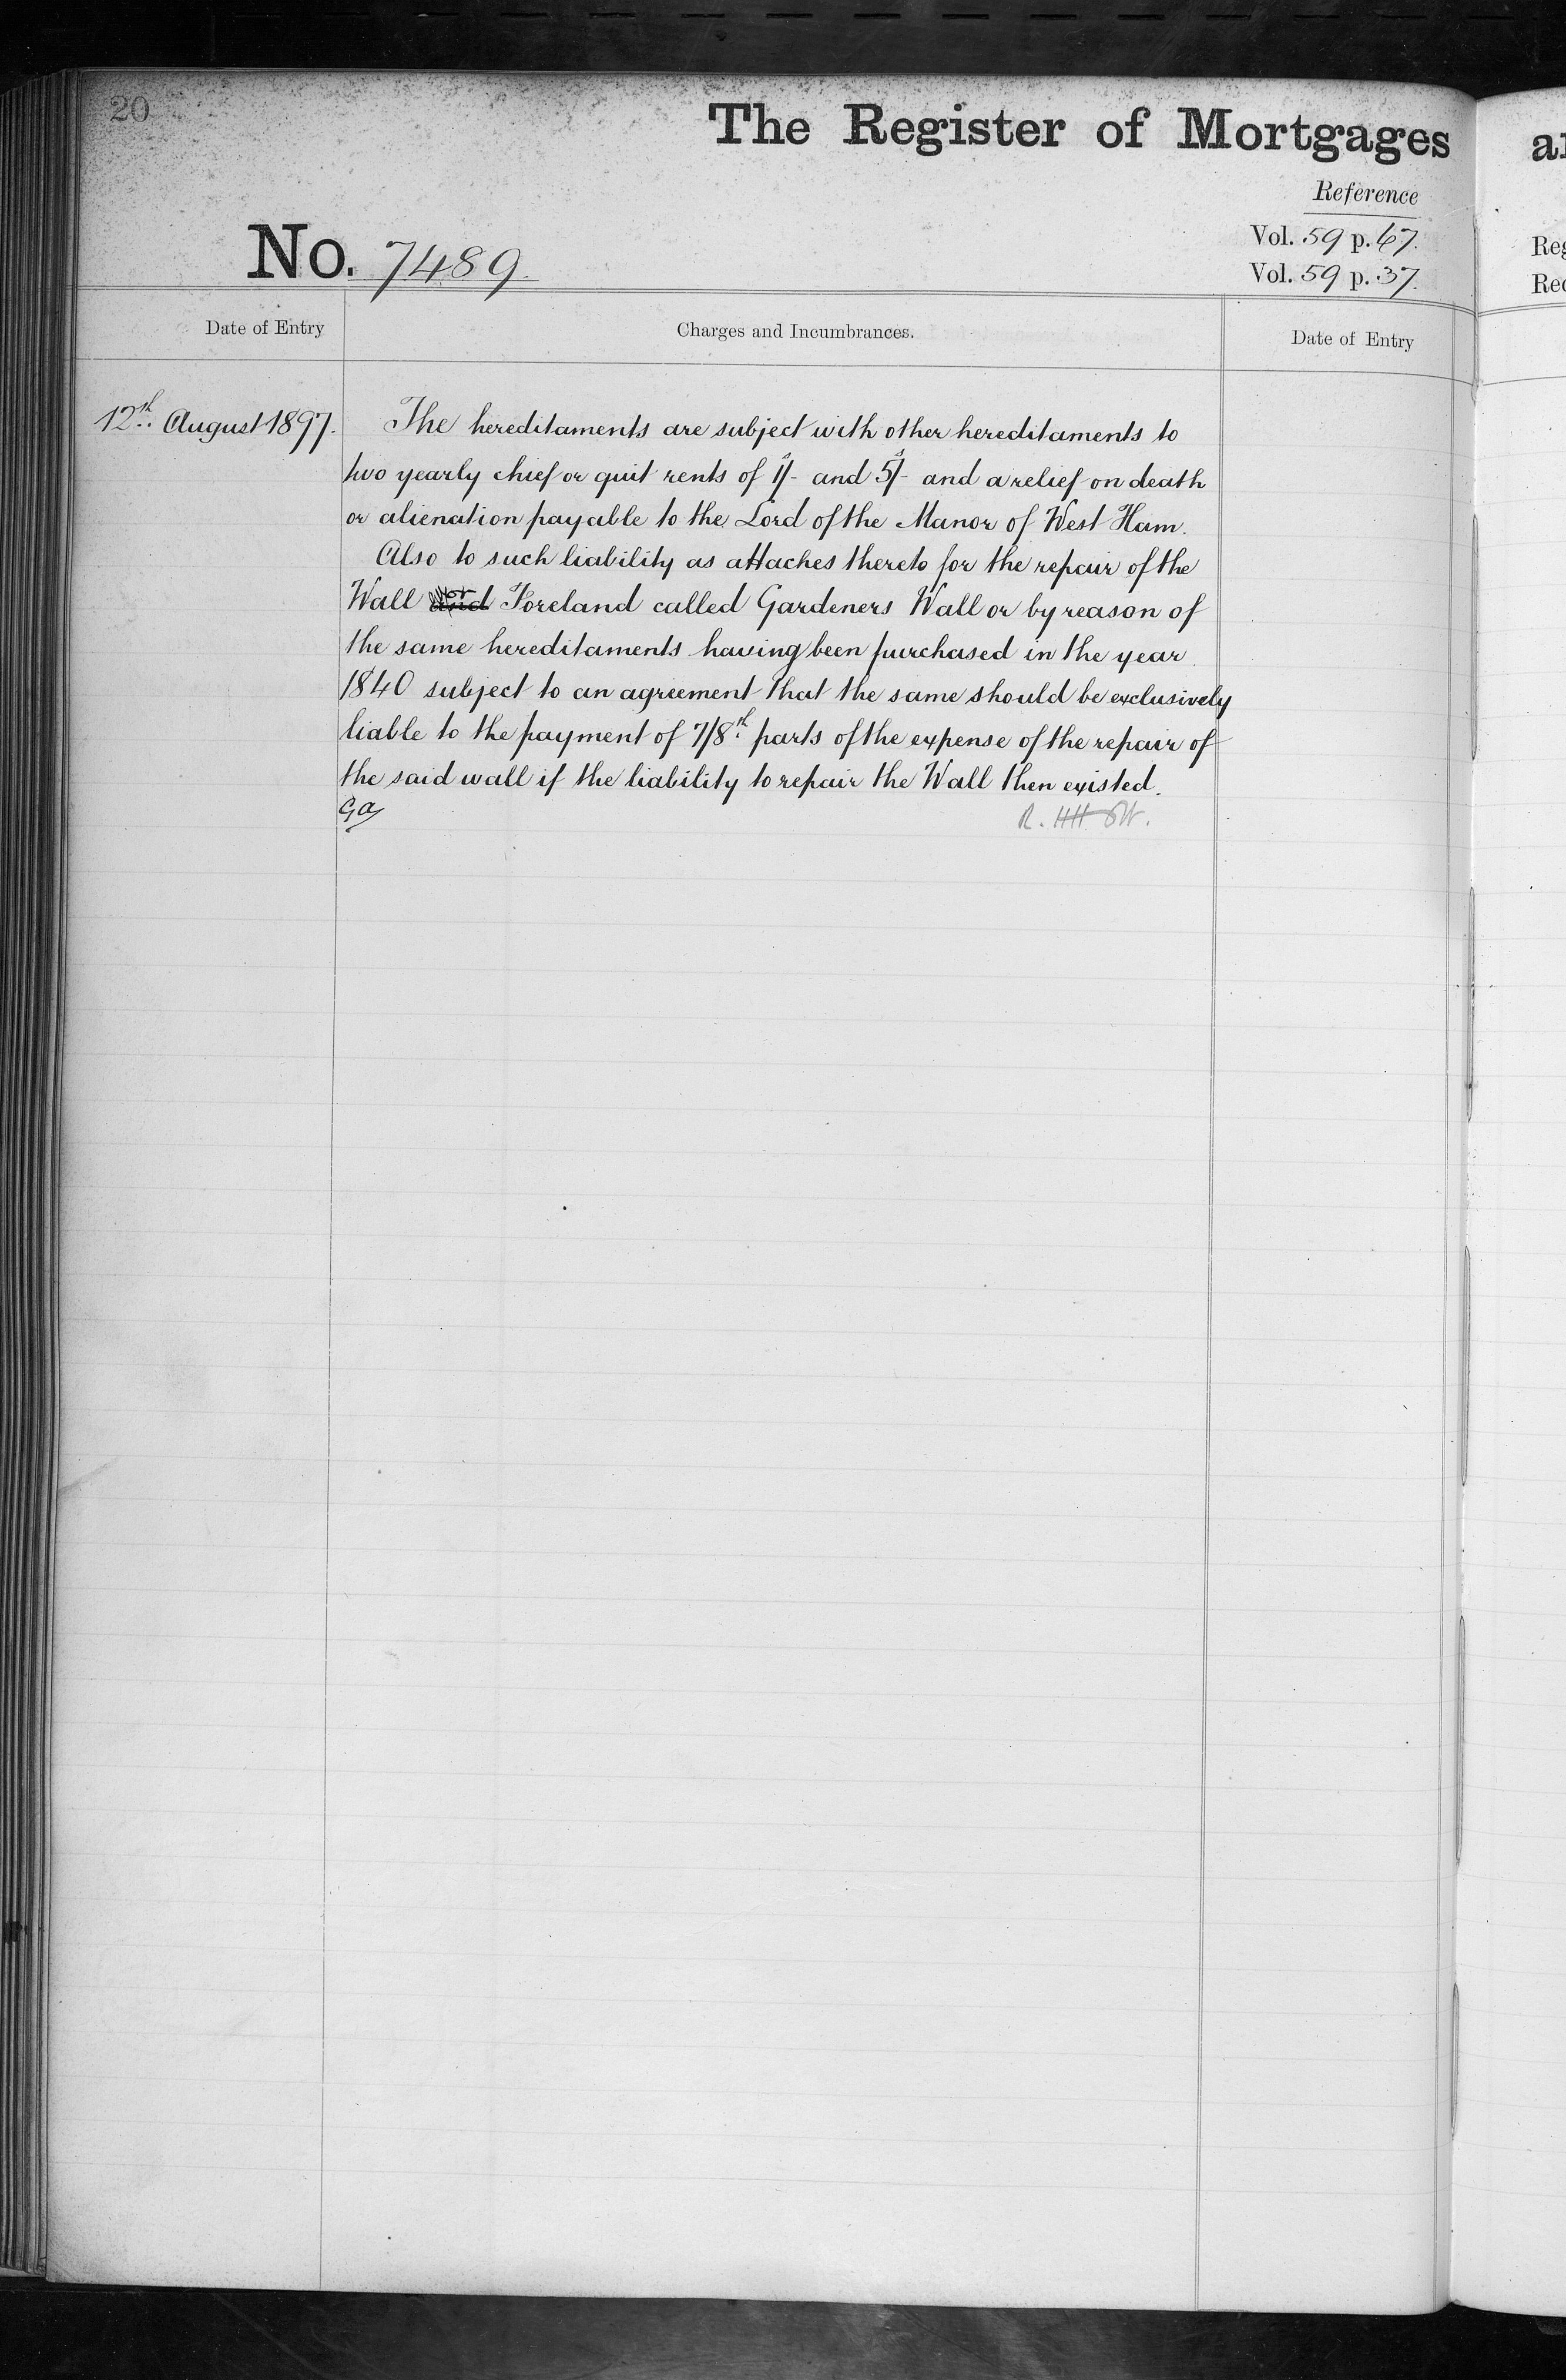 20
The Register of Mortgages
Reference
Vol. 59 p. 67.
Vol. 59 p. 37.
No. 7489.
Date of Entry
Charges and Incumbrances.
Date of Entry
12th. August 1897.
The hereditaments are subject with other hereditaments to
two yearly chief or quit rents of 1s/- and 5s/- and a relief on death
or alienation payable to the Lord of the Manor of West Ham.
Also to such liability as attaches thereto for the repair of the
Wall or Foreland called Gardeners Wall or by reason of
the same hereditaments having been purchased in the year
1840 subject to an agreement that the same should be exclusively
liable to the payment of 7/8th parts of the expense of the repair of
the said wall if the liability to repair the Wall then existed.
Ga
Reg
Rec